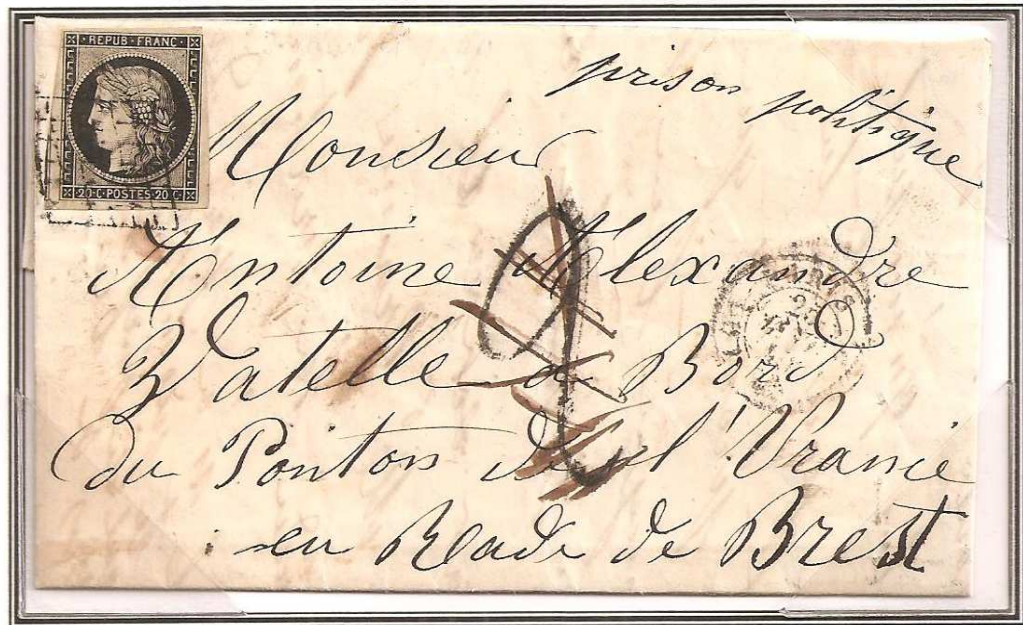 REPUB·FRANC·
20·C·POSTES·20·C·
prison politique
Monsieur
Antoine Alexandre
Watelle à Bord
du Ponton de l'Uranie
en Rade de Brest